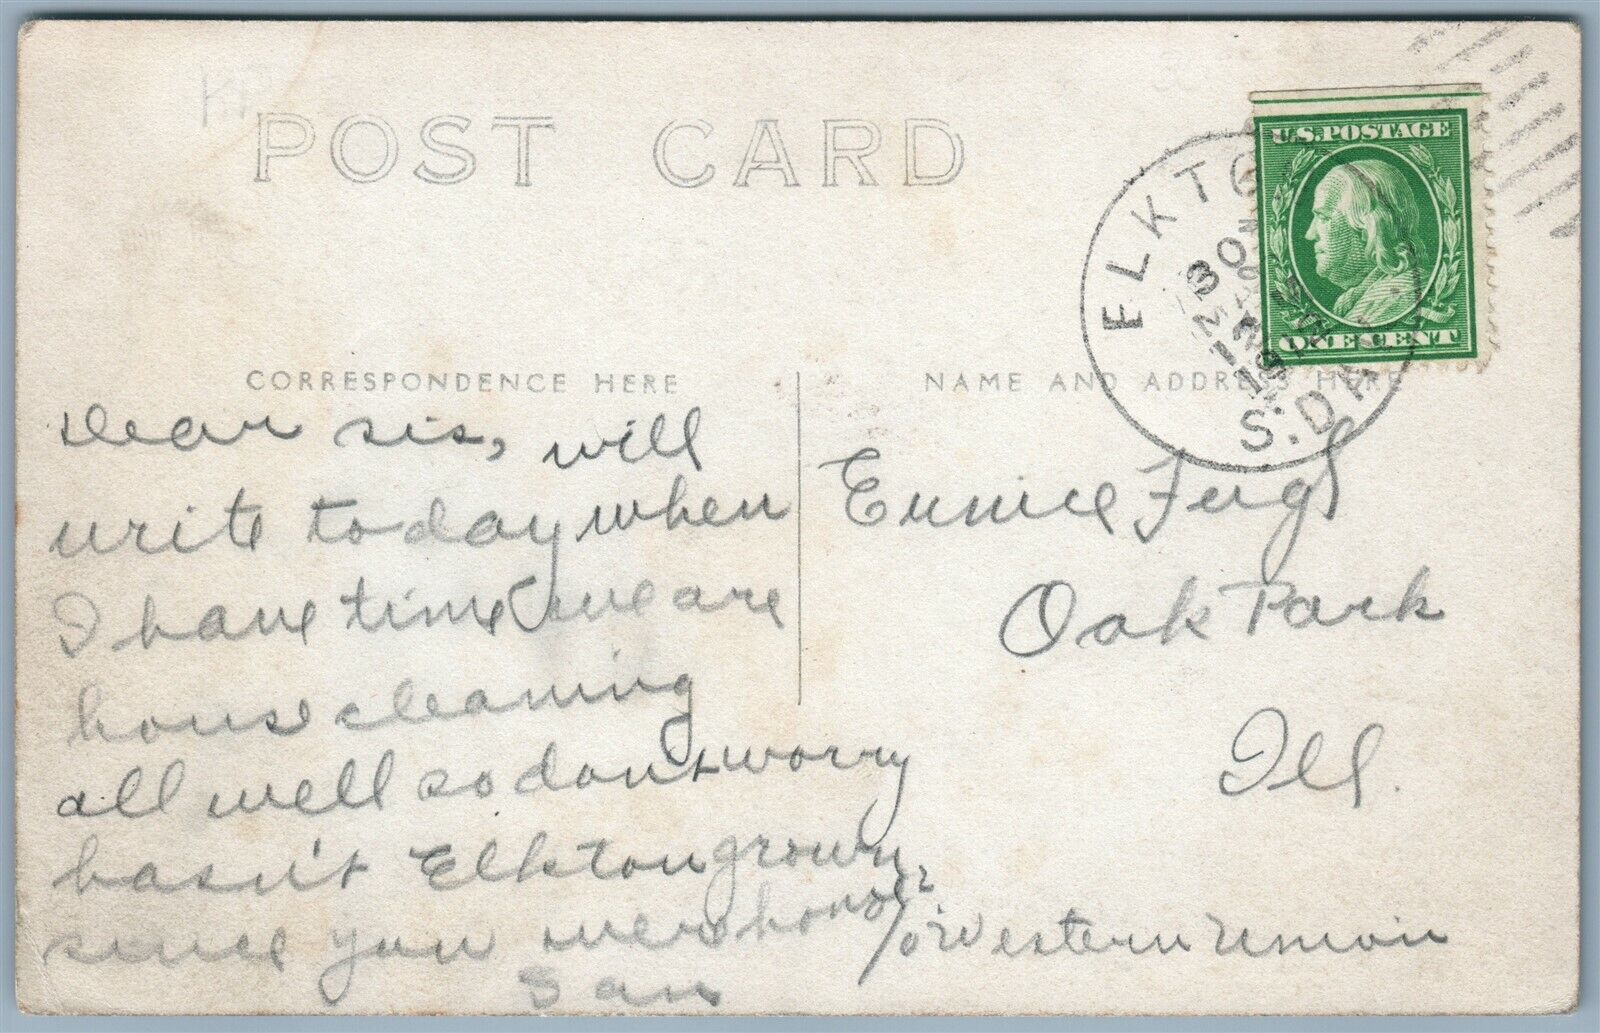 POST CARD
U.S. POSTAGE
ONE CENT
ELKTON
S. DAK.
30
CORRESPONDENCE HERE
NAME AND ADDRESS HERE
Dear sis, will
write today when
I have time we are
housecleaning
all well so dont worry
hasn't Elkton grown
since you were home?
San
Eunice
Oak Park
Ill.
c/o Western Union